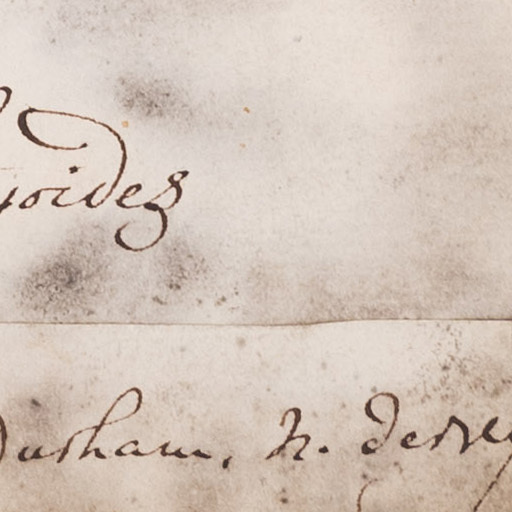 oides
Durham, N. Jersey